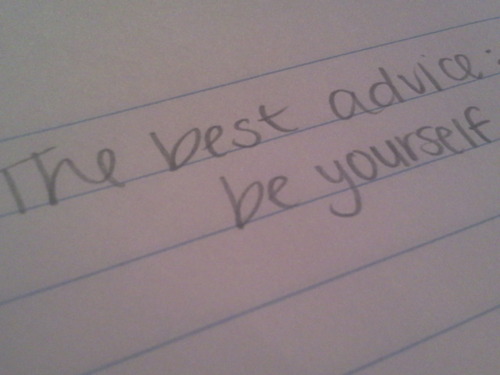 The best advice:
be yourself